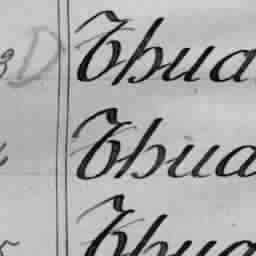 3 D Thua
Thua
5 Thua